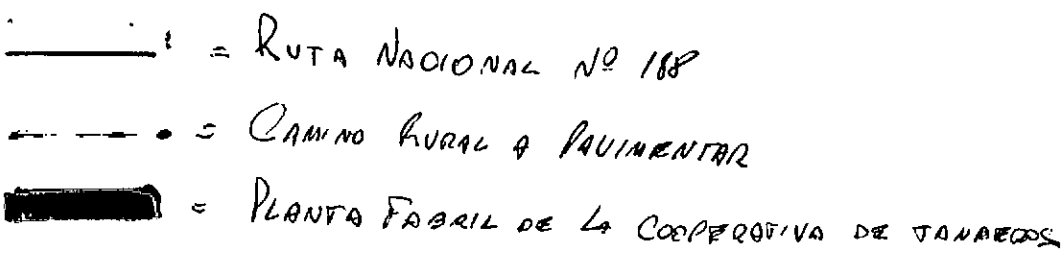 = RUTA NACIONAL Nº 188
= CAMINO RURAL A PAVIMENTAR
= PLANTA FABRIL DE LA COOPERATIVA DE